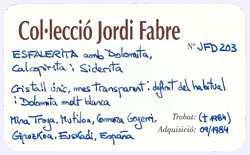 Col·lecció Jordi Fabre
ESFALERITA amb Dolomita, Nº JFD203
Calcopirita i Siderita
Cristall únic, mes transparent i definit del habitual
i Dolomita molt blanca
Mina Troya, Mutiloa, Comarca Goyerri, Trobat: (†1984)
Gipuzkoa, Euskadi, España Adquisició: 09/1984